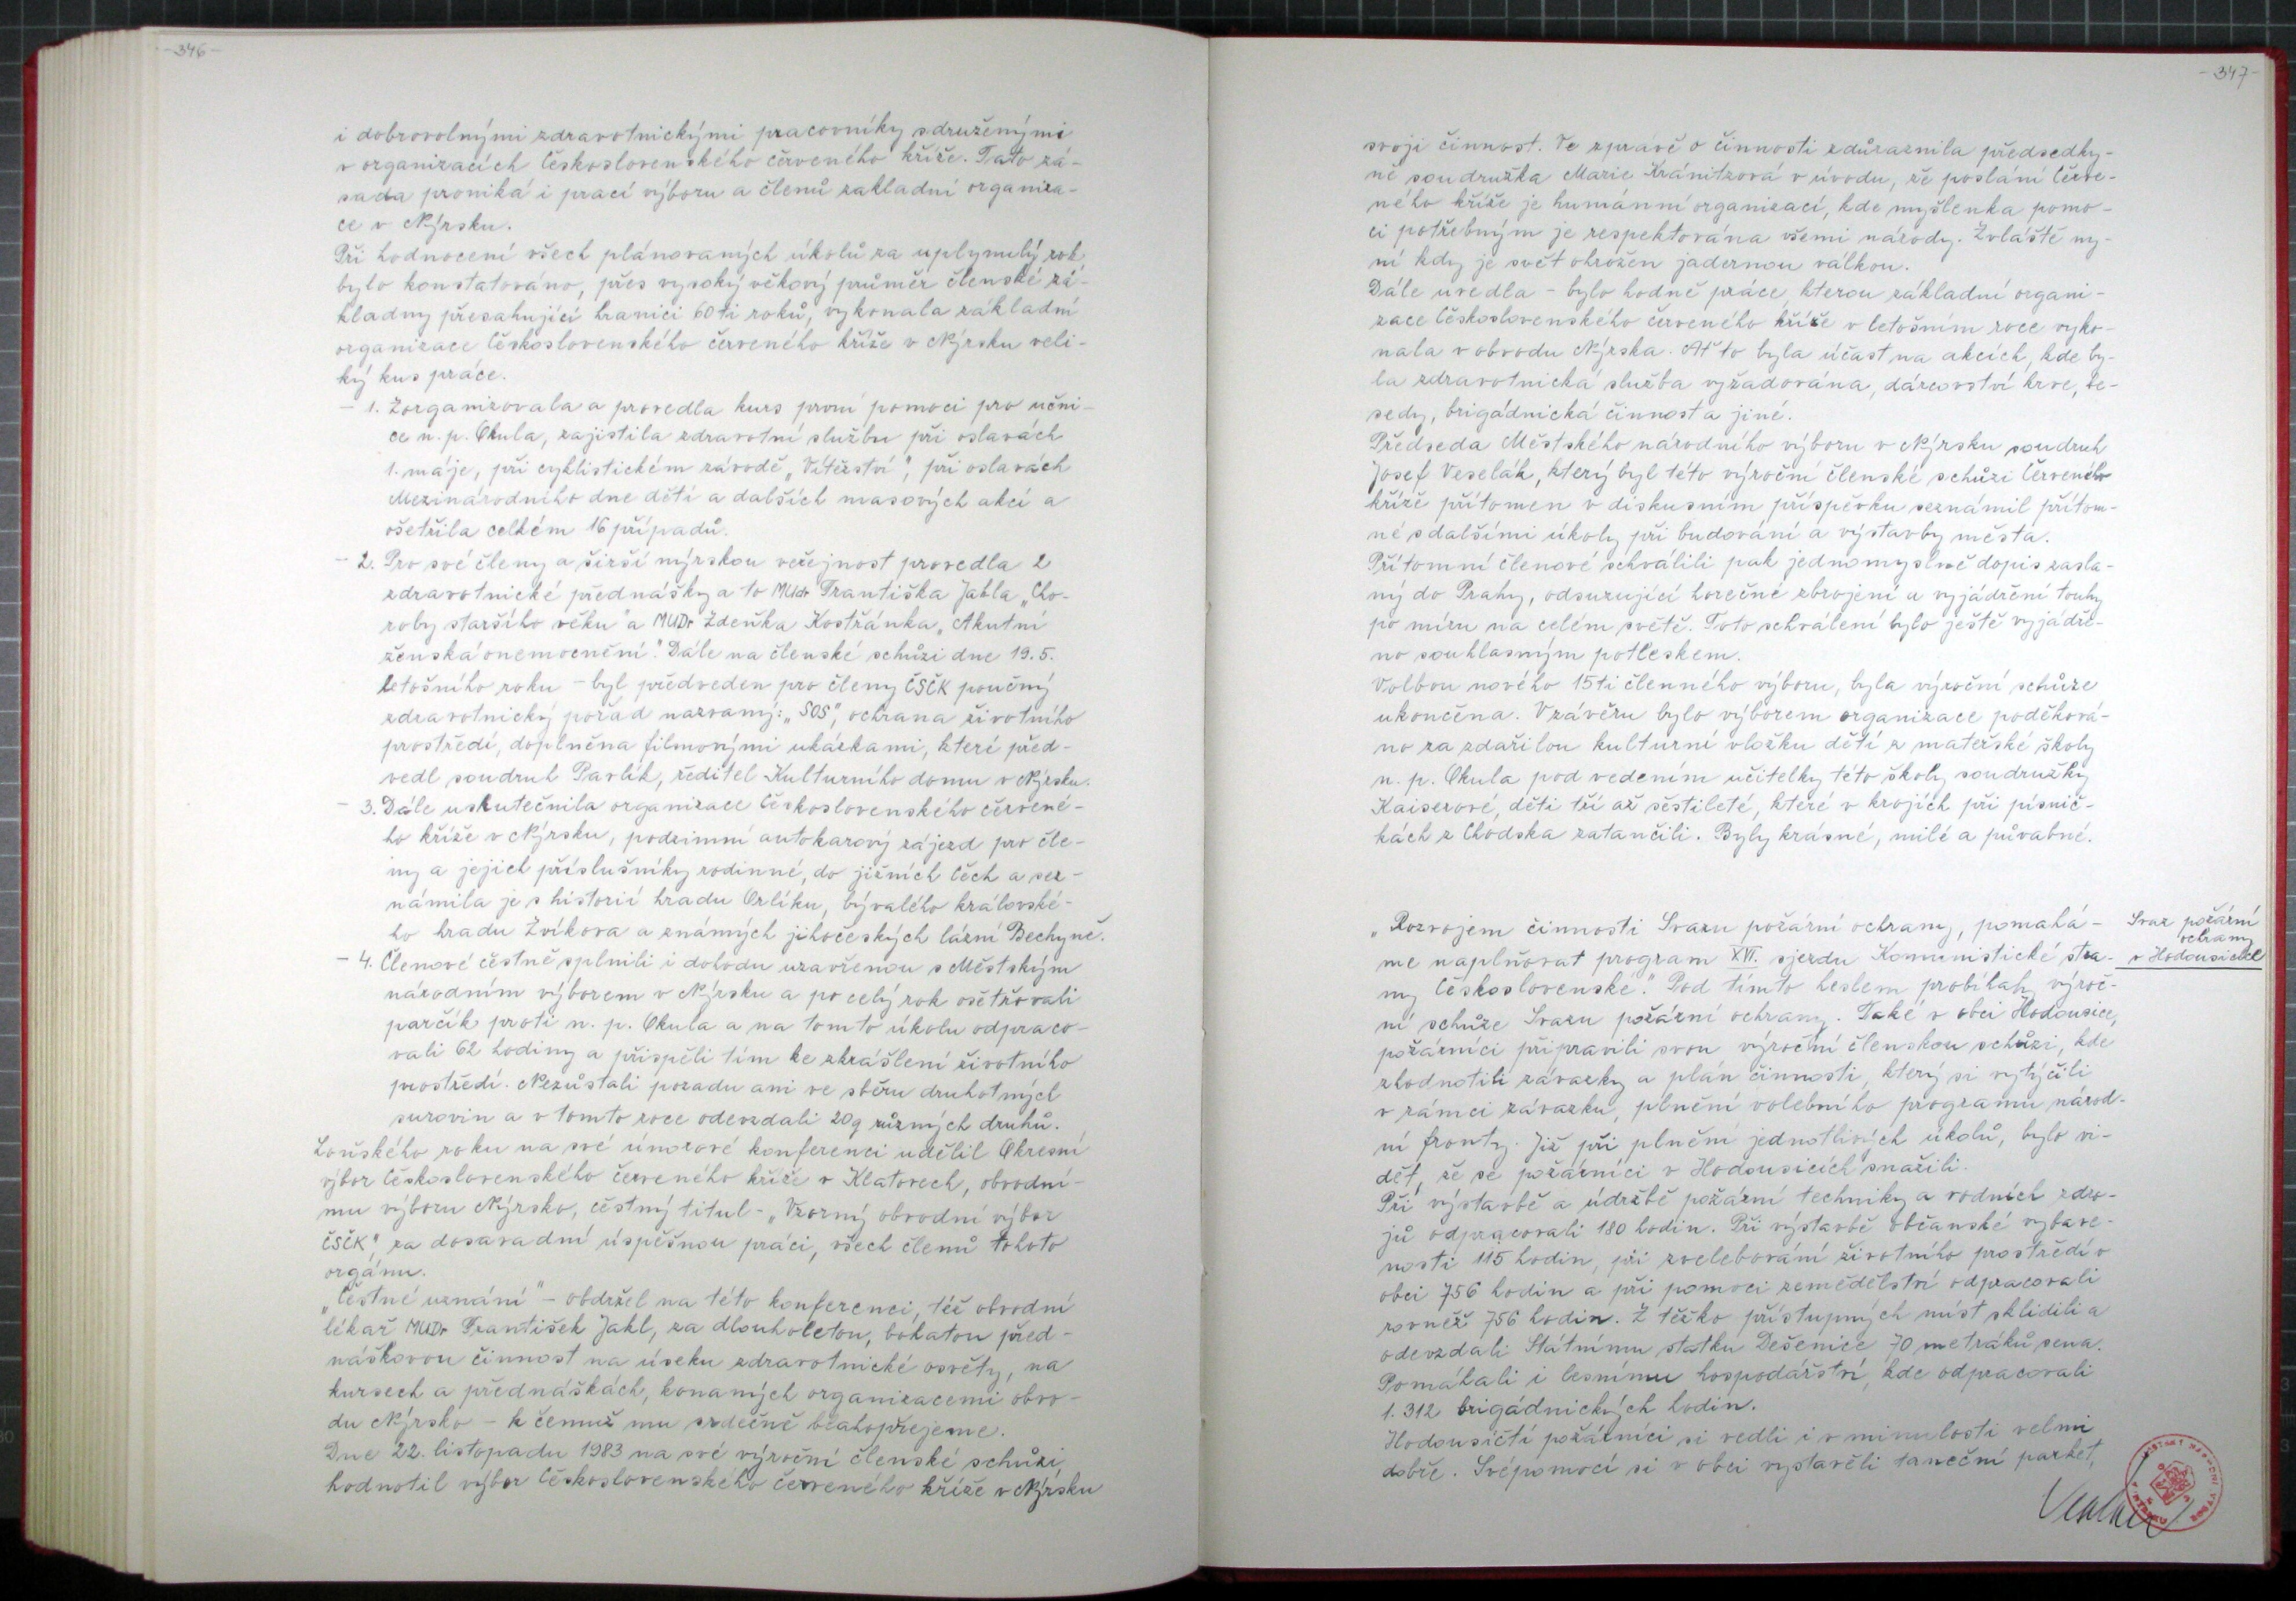 -346-
i dobrovolnými zdravotnickými pracovníky sdruženými
v organizacích Československého červeného kříže. Tato zá-
sada proniká i prací výboru a členů zakladní organiza-
ce v Nýrsku.
Při hodnocení všech plánovaných úkolů za uplynulý rok
bylo konstatováno, přes vysoký věkový průměr členské zá-
kladny přesahující hranici 60ti roků, vykonala základní
organizace Československého červeného kříže v Nýrsku veli-
ký kus práce.
- 1. Zorganizovala a provedla kurs první pomoci pro učni-
ce n. p. Okula, zajistila zdravotní službu při oslavách
1. máje, při cyklistickém závodě „Vítězství", při oslavách
Mezinárodního dne dětí a dalších masových akcí a
ošetřila celkém 16 případů.
- 2. Pro své členy a širší nýrskou veřejnost provedla 2
zdravotnické přednášky a to MUdr Františka Jakla „Cho-
roby staršího věku" a MUDr Zdeňka Kostřánka „Akutní
ženská onemocnění". Dále na členské schůzi dne 19. 5.
letošního roku - byl předveden pro členy ČSČK poučný
zdravotnický pořad nazvaný: „SOS", ochrana životního
prostředí, doplněna filmovými ukázkami, které před-
vedl soudruh Pavlík, ředitel Kulturního domu v Nýrsku.
- 3. Dále uskutečnila organizace Československého červené-
ho kříže v Nýrsku, podzimní autokarový zájezd pro čle-
ny a jejich příslušníky rodinné, do jižních Čech a sez-
námila je s historií hradu Orlíku, bývalého královské-
ho hradu Zvíkova a známých jihočeských lázní Bechyně.
- 4. Členové čestně splnili i dohodu uzavřenou s Městským
národním výborem v Nýrsku a po celý rok ošetřovali
parčík proti n. p. Okula a na tomto úkolu odpraco-
vali 62 hodiny a přispěli tím ke zkrášlení životního
prostředí. Nezůstali pozadu ani ve sběru druhotných
surovin a v tomto roce odevzdali 20q různých druhů.
Loňského roku na své únorové konferenci udělil Okresní
výbor Československého červeného kříže v Klatovech, obvodní-
mu výboru Nýrsko, čestný titul - „Vzorný obvodní výbor
ČSČK", za dosavadní úspěšnou práci, všech členů tohoto
orgánu.
„Čestné uznání" - obdržel na této konferenci, též obvodní
lékař MUDr František Jakl, za dlouholetou, bohatou před-
náškovou činnost na úseku zdravotnické osvěty, na
kursech a přednáškách, konaných organizacemi obvo-
du Nýrsko - k čemuž mu srdečně blahopřejeme.
Dne 22. listopadu 1983 na své výroční členské schůzi
hodnotil výbor Československého červeného kříže v Nýrsku
-347-
svoji činnost. Ve zprávě o činnosti zdůraznila předsedky-
ně soudružka Marie Kránitzová v úvodu, že poslání Červe-
ného kříže je humánní organizací, kde myšlenka pomo-
ci potřebným je respektována všemi národy. Zvláště ny-
ní kdy je svět ohrožen jadernou válkou.
Dále uvedla - bylo hodně práce, kterou základní organi-
zace Československého červeného kříže v letošním roce vyko-
nala v obvodu Nýrska. Ať to byla účast na akcích, kde by-
la zdravotnická služba vyžadována, dárcovství krve, be-
sedy, brigádnická činnost a jiné.
Předseda Městského národního výboru v Nýrsku soudruh
Josef Veselák, který byl této výroční členské schůzi Červeného
kříže přítomen v diskusním příspěvku seznámil přítom-
né s dalšími úkoly při budování a výstavby města.
Přítomní členové schválili pak jednomyslně dopis zasla-
ný do Prahy, odsuzující horečné zbrojení a vyjádření touhy
po míru na celém světě. Toto schválení bylo ještě vyjádře-
no souhlasným potleskem.
Volbou nového 15ti členného výboru, byla výroční schůze
ukončena. V závěru bylo výborem organizace poděková-
no za zdařilou kulturní vložku dětí z mateřské školy
n. p. Okula pod vedením učitelky této školy soudružky
Kaiserové, děti tří až šěstileté, které v krojích při písnič-
kách z Chodska zatančili. Byly krásné, milé a půvabné.
„Rozvojem činnosti Svazu požární ochrany, pomahá-
me naplňovat program XVI. sjezdu Komunistické stra-
ny Československé." Pod tímto heslem probíhaly výroč-
ní schůze Svazu požární ochrany. Také v obci Hodousice,
požárníci připravili svou výroční členskou schůzi, kde
zhodnotili závazky a plán činnosti, který si vytýčili
v rámci závazku, plnění volebního programu národ-
ní fronty. Již při plnění jednotlivých úkolů, bylo vi-
dět, že se požárníci v Hodousicích snažili.
Při výstavbě a údržbě požární techniky a vodních zdro-
jů odpracovali 180 hodin. Při výstavbě občanské vybave-
nosti 115 hodin, při zvelebování životního prostředí v
obci 756 hodin a při pomoci zemědělství odpracovali
rovněž 756 hodin. Z těžko přístupných míst sklidili a
odevzdali Státnímu statku Dešenice 70 metráků sena.
Pomáhali i lesnímu hospodářství, kde odpracovali
1. 312 brigádnických hodin.
Hodousičtí požárníci si vedli i v minulosti velmi
dobře. Svépomocí si v obci vystavěli taneční parket,
Svaz požární
ochrany
v Hodousicích
MĚSTSKÝ NÁRODNÍ VÝBOR
V NÝRSKU